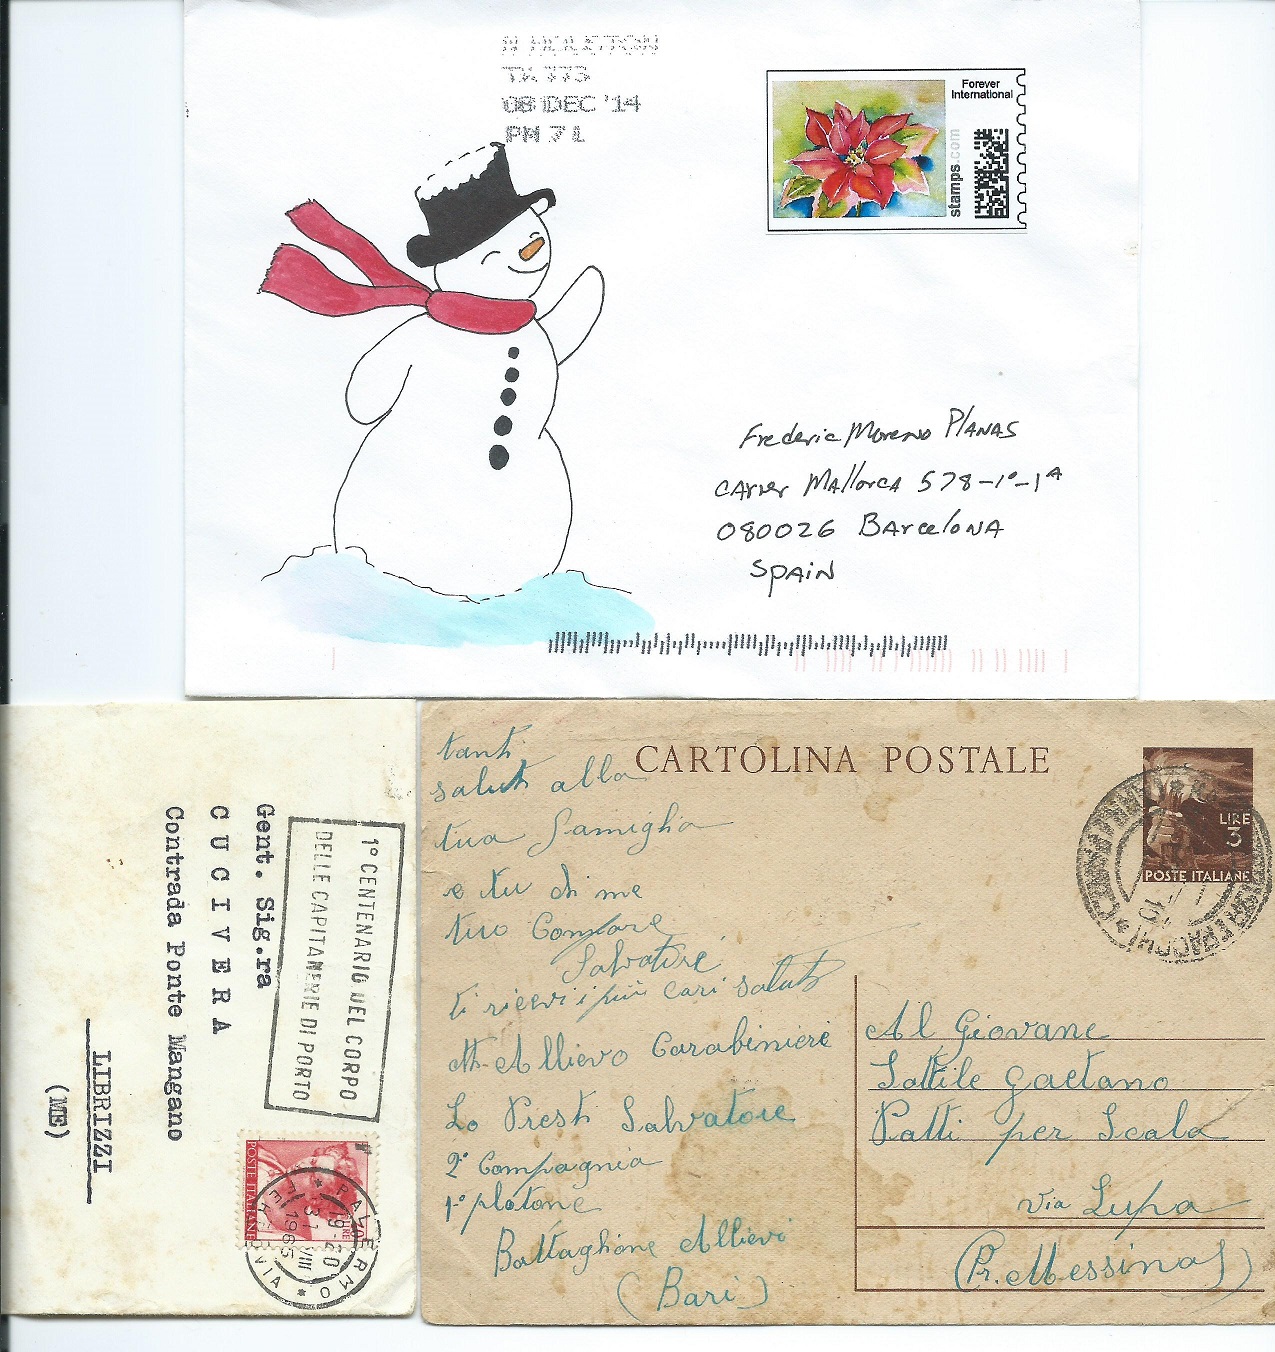 N HOUSTON
TX 773
08 DEC '14
PM 7 L
Forever
International
stamps.com
Frederic Moreno PLANAS
CArrer MAllorcA 578-1º-1ª
080026 BArcelonA
SPAIN
1° CENTENARIO DEL CORPO
DELLE CAPITANERIE DI PORTO
Gent. Sig.ra
CUCIVERA
Contrada Ponte Mangano
LIBRIZZI
(ME)
POSTE ITALIANE
PALERMO
FERROVIA
19-20
31 VIII
1965
CARTOLINA POSTALE
LIRE
3
POSTE ITALIANE
tanti
saluti alla
tua famiglia
e tu di me
tuo Compare
Salvatore
ti ricevi i più cari saluti
Allievo Carabiniere
Lo Presti Salvatore
2° Compagnia
1° plotone
Battaglione Allievi
(Bari)
Al Giovane
Sattile Gaetano
Patti per Scala
via Lupa
(Pr. Messina)